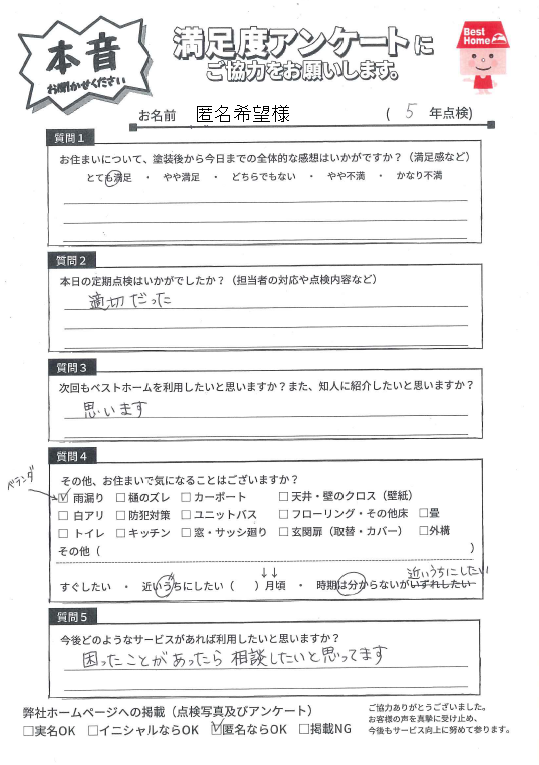 本音
お聞かせください
満足度アンケートに
ご協力をお願いします。
Best Home
お名前 匿名希望様 ( 5 年点検)
質問1
お住まいについて、塗装後から今日までの全体的な感想はいかがですか？（満足感など）
とても満足 ・ やや満足 ・ どちらでもない ・ やや不満 ・ かなり不満
質問2
本日の定期点検はいかがでしたか？（担当者の対応や点検内容など）
適切だった
質問3
次回もベストホームを利用したいと思いますか？また、知人に紹介したいと思いますか？
思います
質問4
その他、お住まいで気になることはございますか？
ベランダ
☑雨漏り □樋のズレ □カーポート □天井・壁のクロス（壁紙）
□白アリ □防犯対策 □ユニットバス □フローリング・その他床 □畳
□トイレ □キッチン □窓・サッシ廻り □玄関扉（取替・カバー） □外構
その他（ ）
近いうちにしたい
すぐしたい ・ 近いうちにしたい（ ↓↓ ）月頃 ・ 時期は分からないがいずれしたい
質問5
今後どのようなサービスがあれば利用したいと思いますか？
困ったことがあったら 相談したいと思ってます
弊社ホームページへの掲載（点検写真及びアンケート）
□実名OK □イニシャルならOK ☑匿名ならOK □掲載NG
ご協力ありがとうございました。
お客様の声を真摯に受け止め、
今後もサービス向上に努めて参ります。